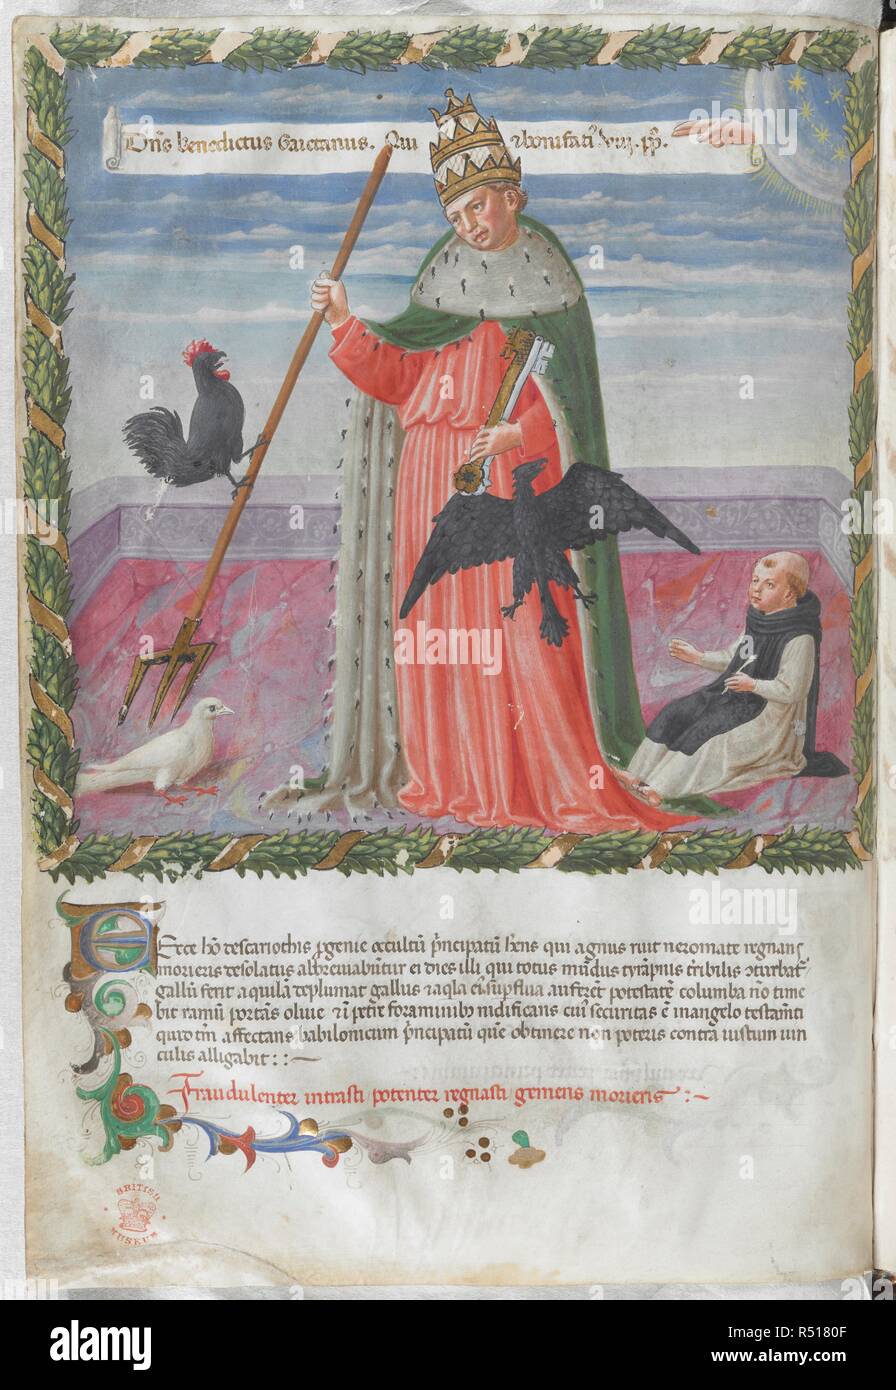 Dn̄s benedictus Gaietanus. Qui bonifati⁹ .viij. pp̄.
Ecce hō descariothis p̱genie occultū p̄ncipatū hn̄s qui agnus ruit neromate regnans
morieris desolatus abbreviabūntur ei dies illi qui totus mūdus tyrāpnis tr̄ibilis ɔturbat
gallū ferit aquilā deplumat gallus & aq̄la ei⁹ supflua auferēt potestatē columba nō time
bit ramū portās olive & ī petre foraminibꝫ nidificans cui⁹ securitas ē in angelo testam̄ti
quid tm̄ affectans babilonicum p̄ncipatū quē obtinere non poteris contra iustum vin
culis alligabit : : ~
Fraudulenter intrasti potenter regnasti gemens morieris : ~
BRITISH MUSEUM
a alamy stock photo
alamy
Image ID: R5180F
www.alamy.com